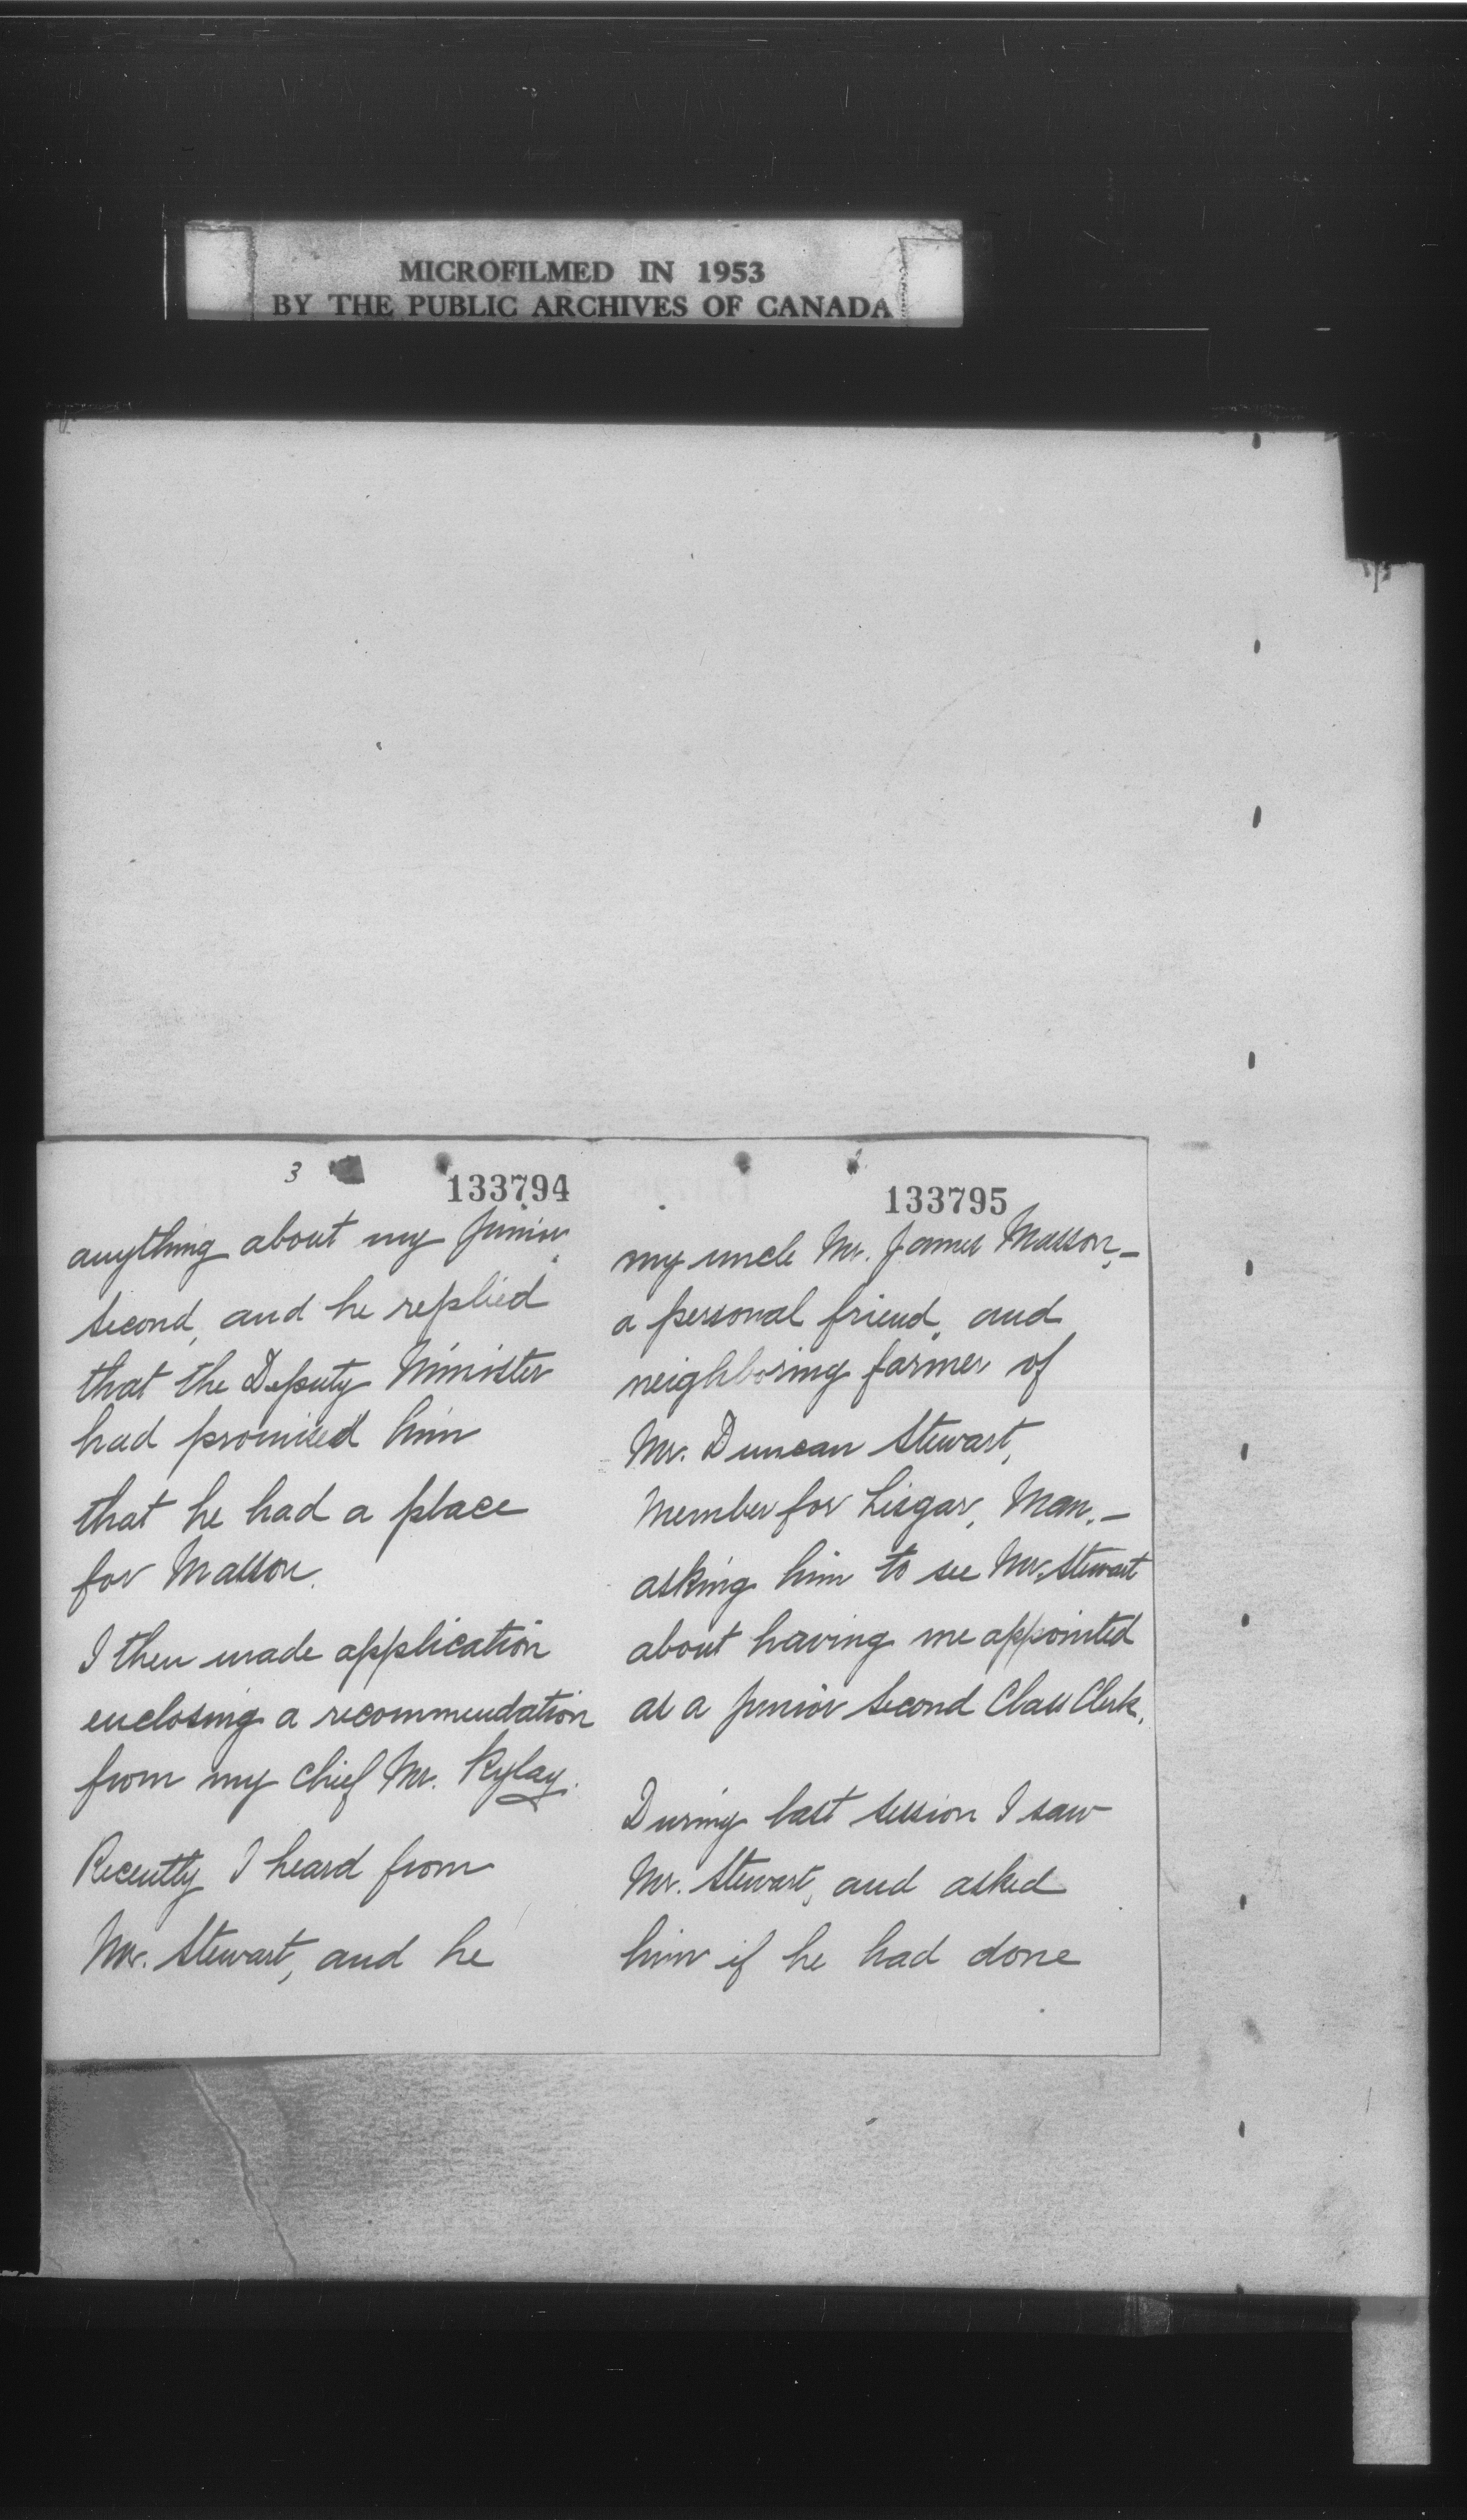 MICROFILMED IN 1953
BY THE PUBLIC ARCHIVES OF CANADA
3
133794
anything about my junior
second, and he replied
that the Deputy Minister
had promised him
that he had a place
for Masson.
I then made application
enclosing a recommendation
from my chief Mr. Rylay.
Recently I heard from
Mr. Stewart, and he
133795
my uncle Mr. James Masson,—
a personal friend, and
neighboring farmer of
Mr. Duncan Stewart,
Member for Lisgar, Man.—
asking him to see Mr. Stewart
about having me appointed
as a junior second Class Clerk.
During last session I saw
Mr. Stewart, and asked
him if he had done